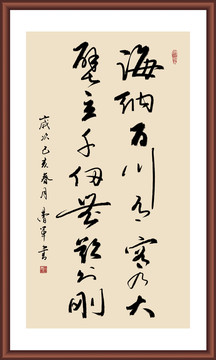 海纳百川有容乃大
壁立千仞无欲则刚
岁次己亥春月